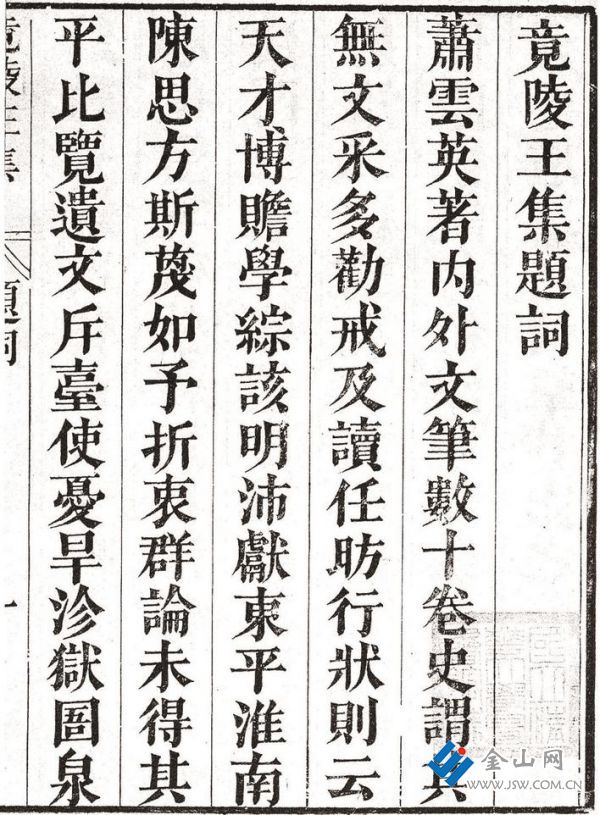 竟陵王集題詞
蕭雲英著内外文筆數十卷史謂其
無文采多勸戒及讀任昉行狀則云
天才博贍學綜該明沛獻東平淮南
陳思方斯蔑如予折衷群論未得其
平比覽遺文斥臺使憂旱沴獄圄泉
竟陵王集
題詞
一
金山网
WWW.JSW.COM.CN